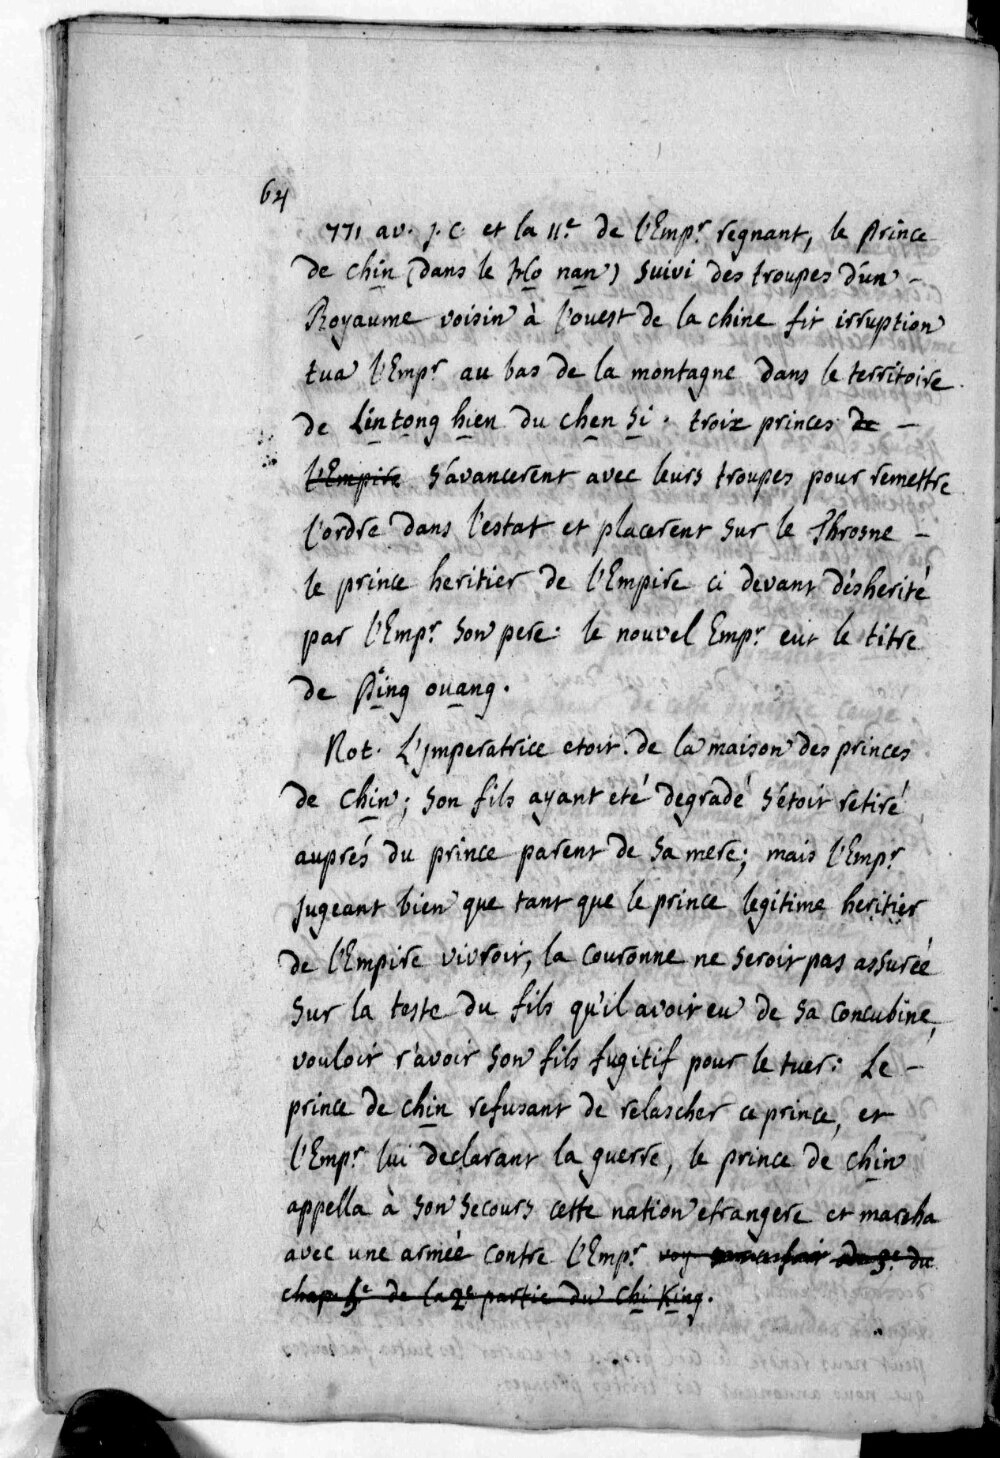 64
771 av. J. C. et la 11e de l'Empr regnant, le Prince
de chin (dans le Ho nan) suivi des troupes d'un -
Royaume voisin à l'ouest de la chine fit irruption
tua l'Empr au bas de la montagne dans le territoire
de Lin tong hien du chen si. trois princes de -
l'Empire s'avancerent avec leurs troupes pour remettre
l'ordre dans l'estat et placerent sur le Throsne -
le prince heritier de l'Empire ci devant désherité
par l'Empr son pere: le nouvel Empr eut le titre
de Ping ouang.
Not. L'jmperatrice etoit de la maison des princes
de chin; son fils ayant eté degradé s'étoit retiré
auprés du prince parent de sa mere; mais l'Empr
jugeant bien que tant que le prince legitime heritier
de l'Empire vivroit, la couronne ne seroit pas assurée
sur la teste du fils qu'il avoit eu de sa concubine,
vouloit r'avoir son fils fugitif pour le tuer: Le -
prince de chin refusant de relascher ce prince, et
l'Empr lui declarant la guerre, le prince de chin
appella à son secours cette nation etrangere et marcha
avec une armée contre l'Empr voy ode 9e du
chap. 4e de la 2e partie du Chi King.